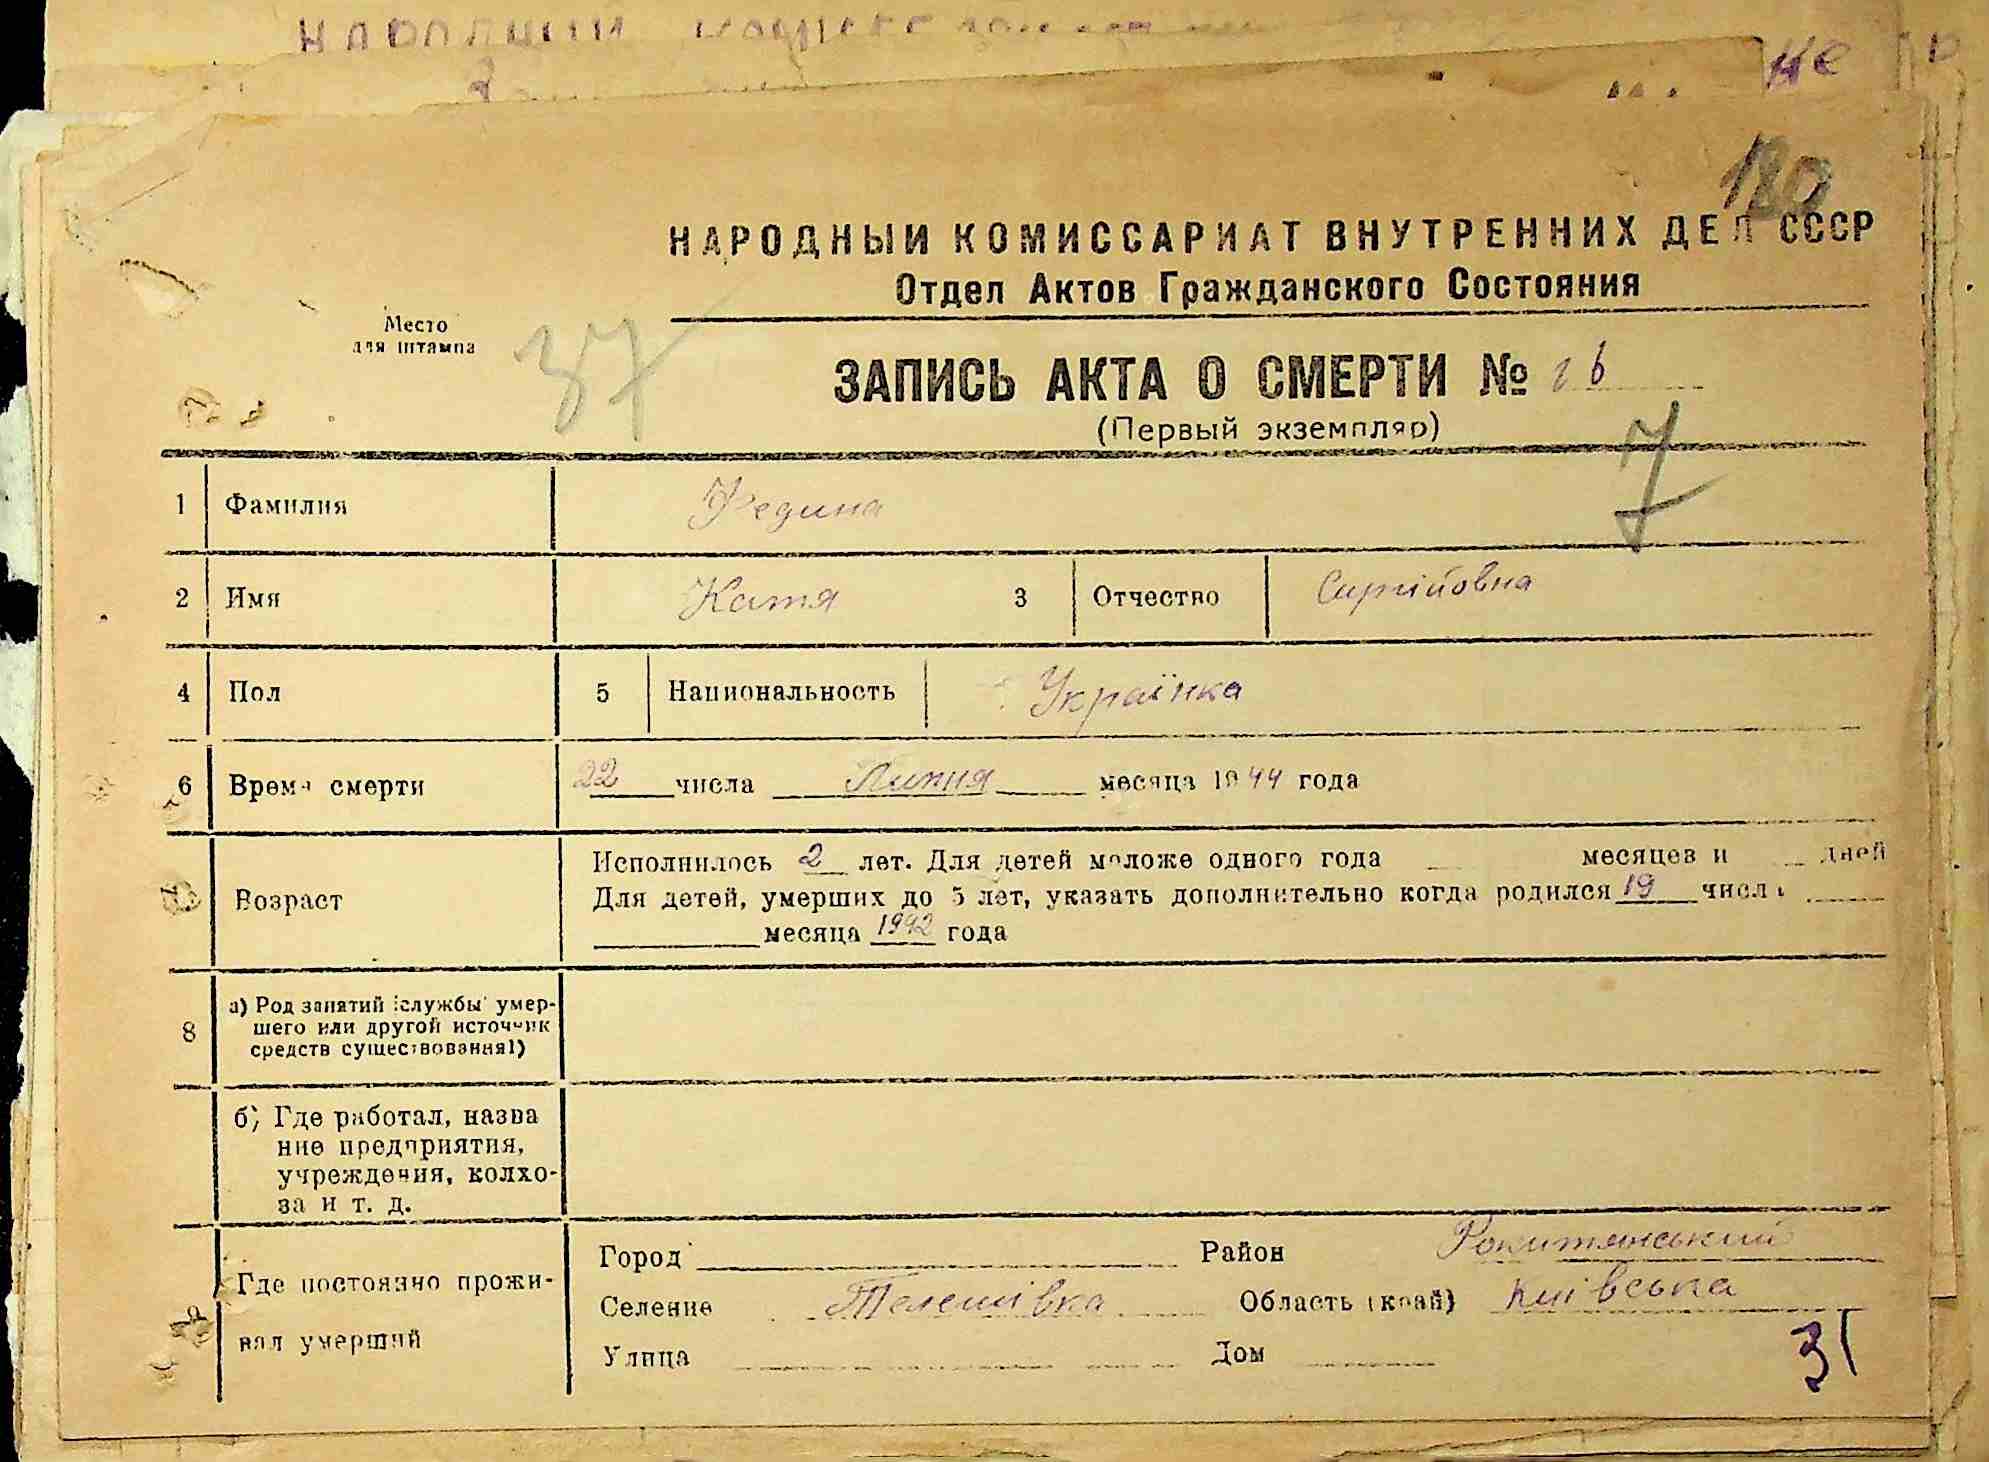 180
НАРОДНЫЙ КОМИССАРИАТ ВНУТРЕННИХ ДЕЛ СССР
Отдел Актов Гражданского Состояния
Место
для штампа
37
ЗАПИСЬ АКТА О СМЕРТИ №
(Первый экземпляр)
7
1 Фамилия Федина
2 Имя Катя 3 Отчество Сиргійовна
4 Пол 5 Национальность Українка
6 Время смерти 22 числа Липня месяца 1944 года
Возраст
Исполнилось 2 лет. Для детей моложе одного года месяцев и дней
Для детей, умерших до 5 лет, указать дополнительно когда родился 19 числа
месяца 1942 года
8 а) Род занятий (службы) умер-
шего или другой источник
средств существования1)
б) Где работал, назва
ние предприятия,
учреждения, колхо-
за и т. д.
Где постоянно прожи-
вал умерший
Город Район Рокитянський
Селение Телешівка Область (край) Київська
Улица Дом
31